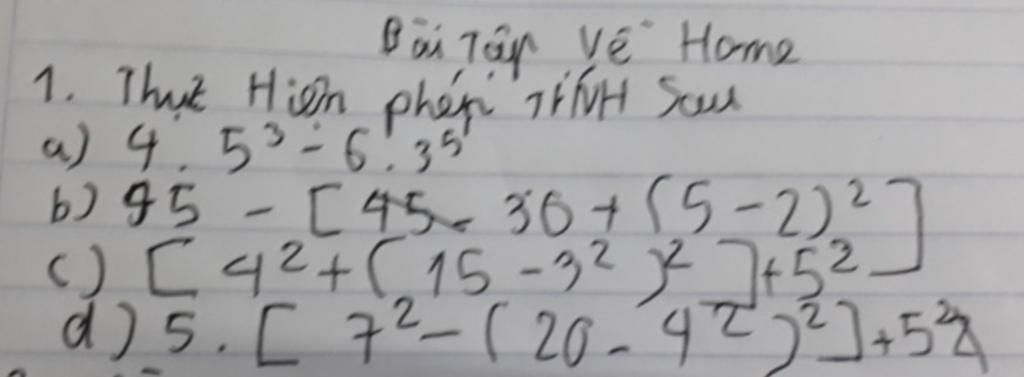 Bài Tập Về Home
1. Thực Hiện phép TÍNH Sau
a) 4 . 5³ - 6 . 3⁵
b) 95 - [ 45 - 36 + (5 - 2)² ]
c) [ 4² + ( 15 - 3² )² ] + 5²
d) 5 . [ 7² - ( 20 - 4² )² ] + 5²